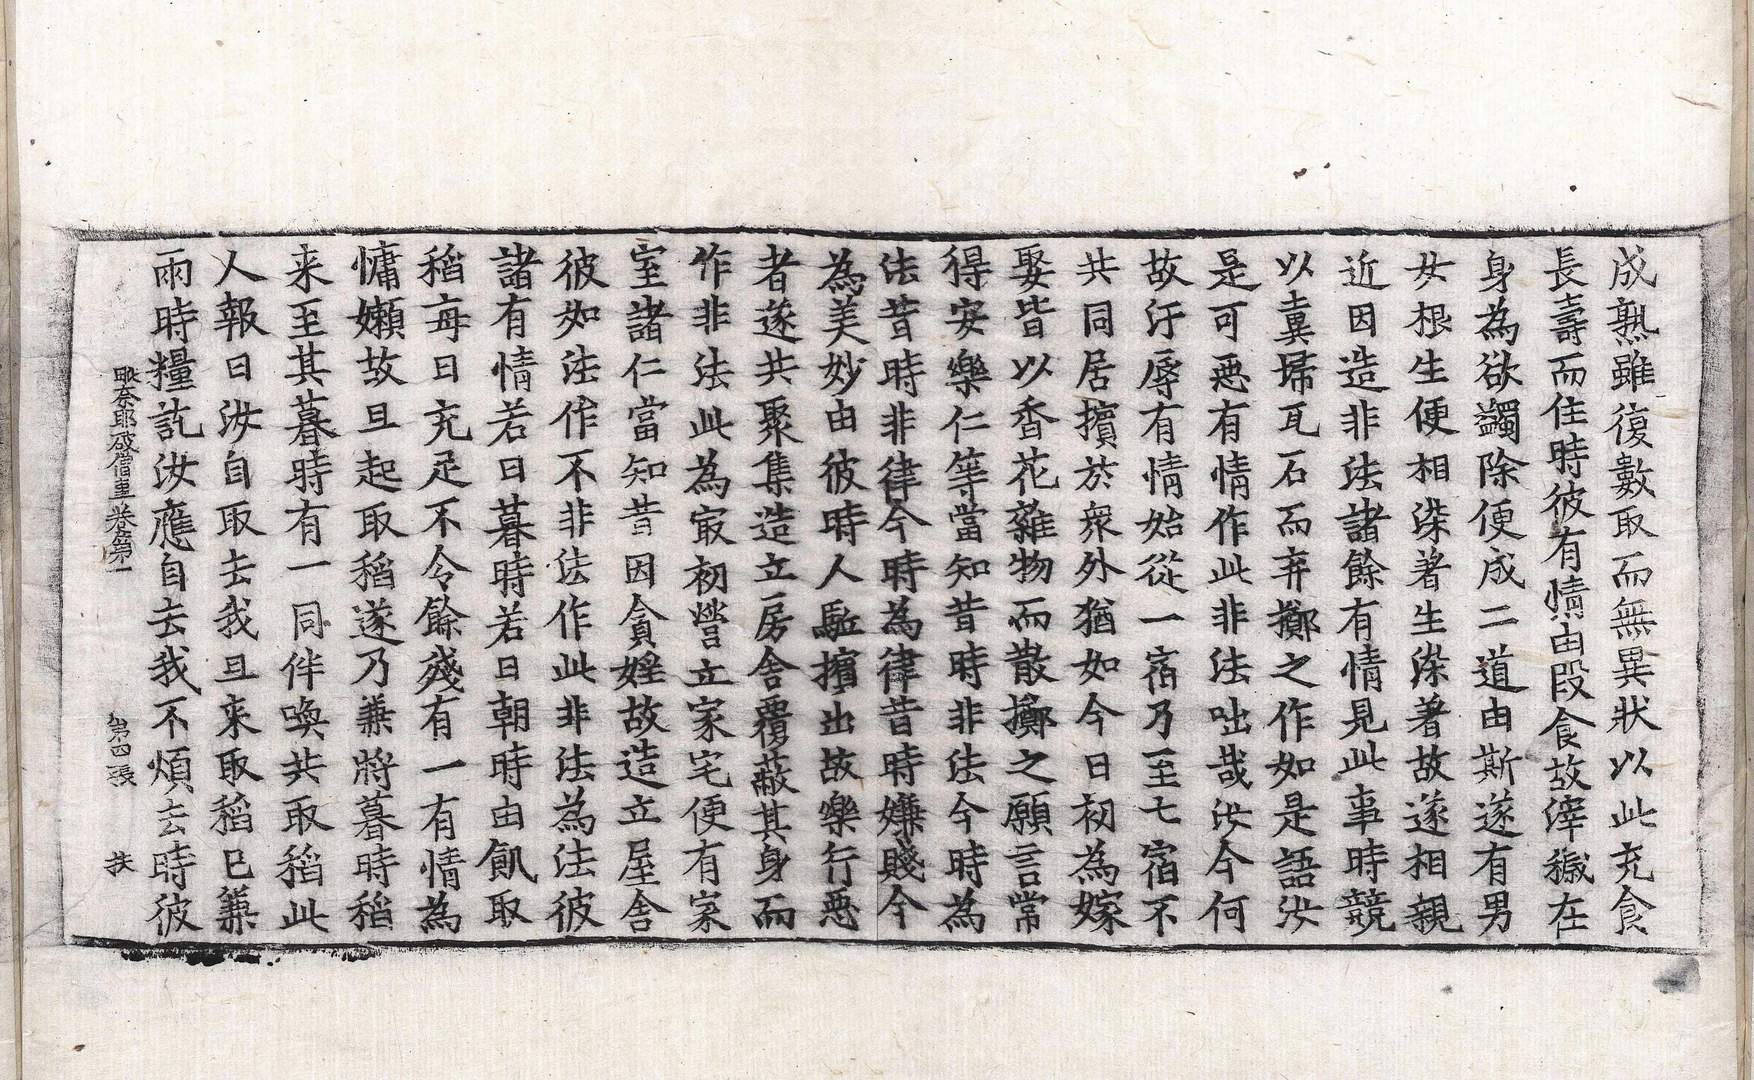 成熟雖復數取而無異狀以此充食
長壽而住時彼有情由段食故滓穢在
身為欲蠲除便成二道由斯遂有男
女根生便相染著生染著故遂相親
近因造非法諸餘有情見此事時競
以糞掃瓦石而弃擲之作如是語汝
是可惡有情作此非法咄哉汝今何
故汙辱有情始從一宿乃至七宿不
共同居擯於衆外猶如今日初為嫁
娶皆以香花雜物而散擲之願言常
得安樂仁等當知昔時非法今時為
法昔時非律今時為律昔時嫌賤今
為美妙由彼時人駈擯出故樂行惡
者遂共聚集造立房舍覆蔽其身而
作非法此為㝡初營立家宅便有家
室諸仁當知昔因貪婬故造立屋舍
彼如法作不非法作此非法為法彼
諸有情若日暮時若日朝時由飢取
稻每日充足不令餘殘有一有情為
慵嬾故旦起取稻遂乃兼將暮時稻
来至其暮時有一同伴喚共取稻此
人報曰汝自取去我旦来取稻已兼
兩時糧訖汝應自去我不煩去時彼
毗奈耶破僧事卷第一 第四張 扶